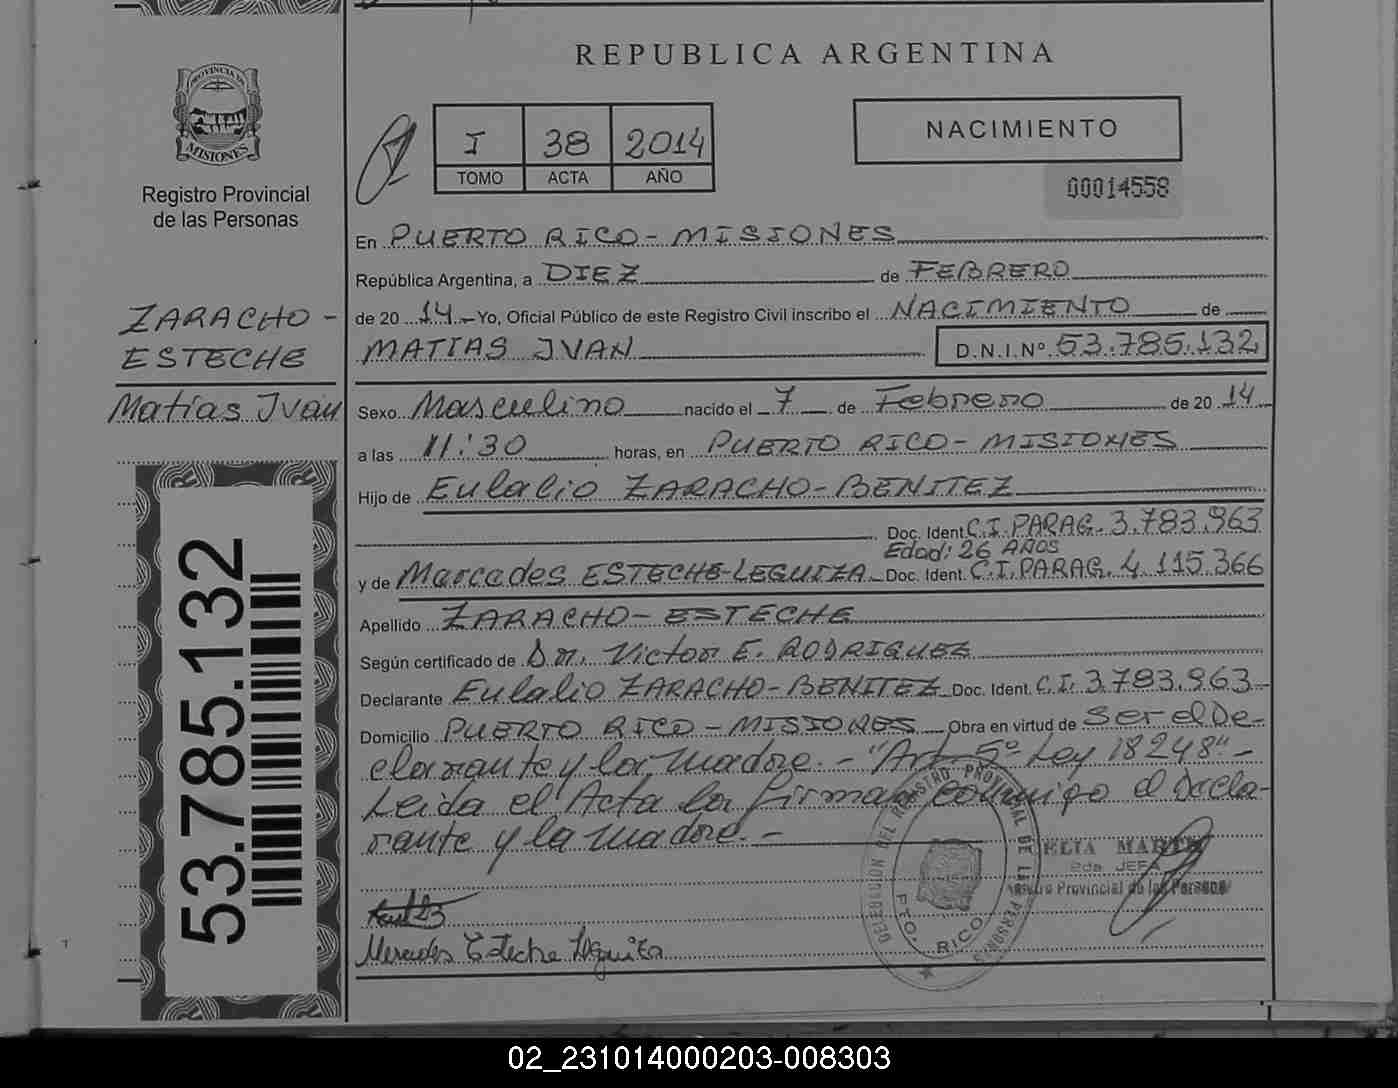 REPUBLICA ARGENTINA
PROVINCIA DE
MISIONES
Registro Provincial
de las Personas
I 38 2014
TOMO ACTA AÑO
NACIMIENTO
00014558
En PUERTO RICO - MISIONES
República Argentina, a DIEZ de FEBRERO
de 20 14 Yo, Oficial Público de este Registro Civil inscribo el NACIMIENTO de
MATIAS IVAN D.N.I.Nº 53.785.132
ZARACHO -
ESTECHE
Matías Iván
Sexo Masculino nacido el 7 de Febrero de 20 14
a las 11:30 horas, en PUERTO RICO - MISIONES
Hijo de Eulalio ZARACHO - BENITEZ
Doc. Ident. C.I. PARAG. 3.783.963
Edad: 26 AÑOS
y de Marcades ESTECHE-LEGUIZA Doc. Ident. C.I. PARAG. 4.115.366
Apellido ZARACHO - ESTECHE
Según certificado de Dr. Victor E. RODRIGUEZ
Declarante Eulalio ZARACHO - BENITEZ Doc. Ident. C.I. 3.783.963
Domicilio PUERTO RICO - MISIONES Obra en virtud de Ser el De-
clarante y la madre. - "Art 5º Ley 18248" -
Leida el Acta la firman conmigo el Decla-
rante y la madre. -
53.785.132
DELEGACION DEL REGISTRO PROVINCIAL DE LAS PERSONAS
PTO. RICO
2da JEFA
Registro Provincial de las Personas
Mercedes Esteche Leguiza
02_231014000203-008303